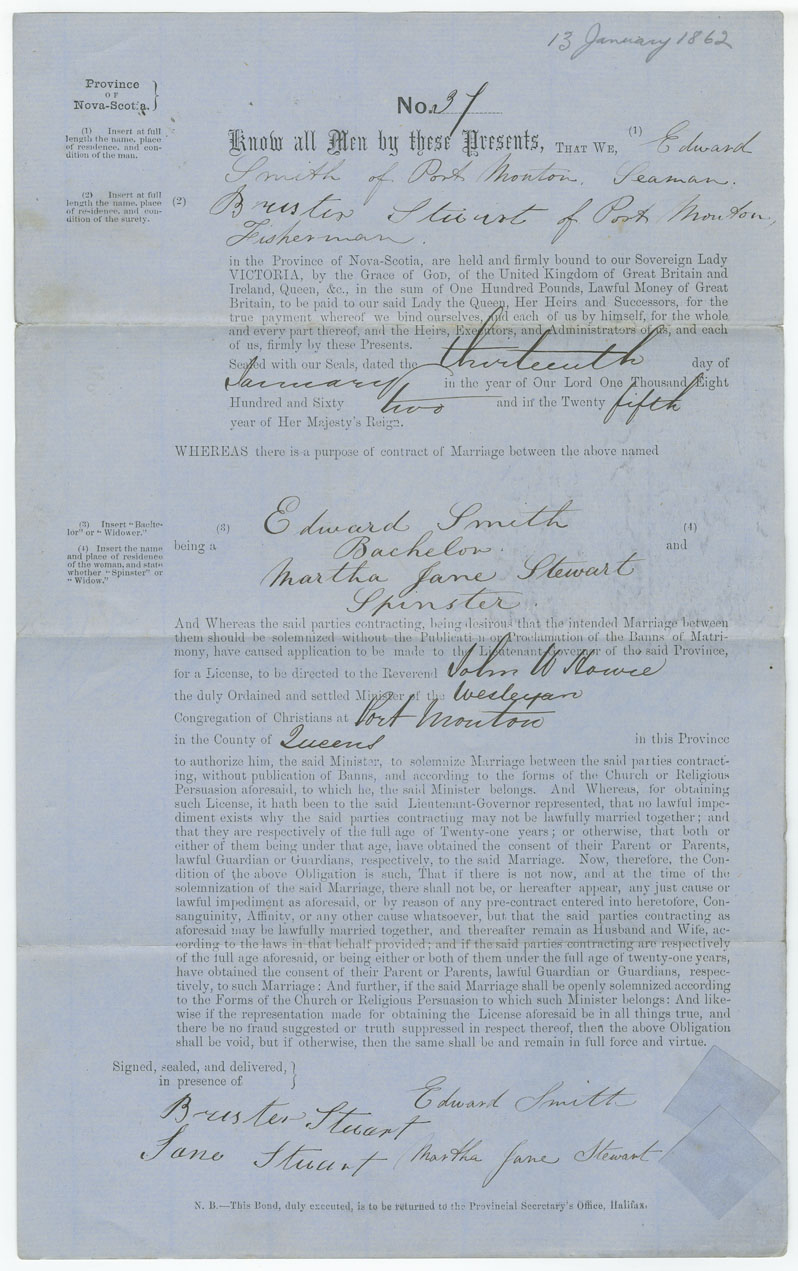 13 January 1862
Province
OF
Nova-Scotia.
No. 37
(1) Insert at full
length the name, place
of residence, and con-
dition of the man.
Know all Men by these Presents, THAT WE, (1) Edward
Smith of Port Mouton, Seaman.
(2) Insert at full
length the name, place
of residence, and con-
dition of the surety.
(2) Bruster Stuart of Port Mouton,
Fisherman.
in the Province of Nova-Scotia, are held and firmly bound to our Sovereign Lady
VICTORIA, by the Grace of GOD, of the United Kingdom of Great Britain and
Ireland, Queen, &c., in the sum of One Hundred Pounds, Lawful Money of Great
Britain, to be paid to our said Lady the Queen, Her Heirs and Successors, for the
true payment whereof we bind ourselves, and each of us by himself, for the whole
and every part thereof, and the Heirs, Executors, and Administrators of us, and each
of us, firmly by these Presents.
Sealed with our Seals, dated the thirteenth day of
January in the year of Our Lord One Thousand Eight
Hundred and Sixty two and in the Twenty fifth
year of Her Majesty's Reign.
WHEREAS there is a purpose of contract of Marriage between the above named
(3) Insert "Bache-
lor" or "Widower."
(3) Edward Smith (4)
(4) Insert the name
and place of residence
of the woman, and state
whether "Spinster" or
"Widow."
being a Bachelor. and
Martha Jane Stewart
Spinster.
And Whereas the said parties contracting, being desirous that the intended Marriage between
them should be solemnized without the Publication or Proclamation of the Banns of Matri-
mony, have caused application to be made to the Lieutenant-Governor of the said Province,
for a License, to be directed to the Reverend John W Howie
the duly Ordained and settled Minister of the Wesleyan
Congregation of Christians at Port Mouton
in the County of Queens in this Province
to authorize him, the said Minister, to solemnize Marriage between the said parties contract-
ing, without publication of Banns, and according to the forms of the Church or Religious
Persuasion aforesaid, to which he, the said Minister belongs. And Whereas, for obtaining
such License, it hath been to the said Lieutenant-Governor represented, that no lawful impe-
diment exists why the said parties contracting may not be lawfully married together; and
that they are respectively of the full age of Twenty-one years; or otherwise, that both or
either of them being under that age, have obtained the consent of their Parent or Parents,
lawful Guardian or Guardians, respectively, to the said Marriage. Now, therefore, the Con-
dition of the above Obligation is such, That if there is not now, and at the time of the
solemnization of the said Marriage, there shall not be, or hereafter appear, any just cause or
lawful impediment as aforesaid, or by reason of any pre-contract entered into heretofore, Con-
sanguinity, Affinity, or any other cause whatsoever, but that the said parties contracting as
aforesaid may be lawfully married together, and thereafter remain as Husband and Wife, ac-
cording to the laws in that behalf provided; and if the said parties contracting are respectively
of the full age aforesaid, or being either or both of them under the full age of twenty-one years,
have obtained the consent of their Parent or Parents, lawful Guardian or Guardians, respec-
tively, to such Marriage: And further, if the said Marriage shall be openly solemnized according
to the Forms of the Church or Religious Persuasion to which such Minister belongs: And like-
wise if the representation made for obtaining the License aforesaid be in all things true, and
there be no fraud suggested or truth suppressed in respect thereof, then the above Obligation
shall be void, but if otherwise, then the same shall be and remain in full force and virtue.
Signed, sealed, and delivered,
in presence of
Edward Smith
Bruster Stuart
Jane Stuart Martha Jane Stewart
N. B.—This Bond, duly executed, is to be returned to the Provincial Secretary's Office, Halifax.